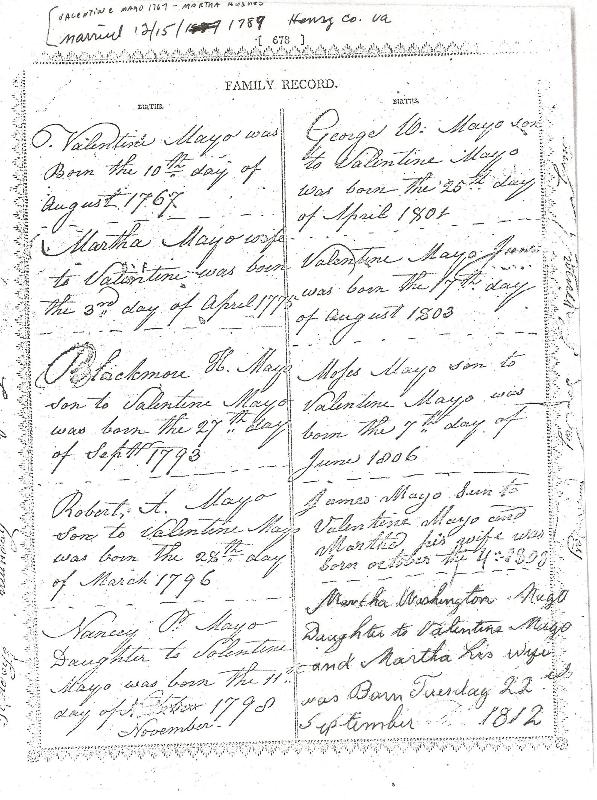 VALENTINE MAYO 1767 - MARTHA HUGHES
Married 12/15/1789 Henry Co. Va
[ 678 ]
FAMILY RECORD.
BIRTHS.
Valentine Mayo was
Born the 10th day of
August 1767
Martha Mayo wife
to Valentine was born
the 3rd day of April 1775
Blackmore H. Mayo
son to Valentine Mayo
was born the 27th day
of Septr 1793
Robert, A. Mayo
son to Valentine Mayo
was born the 28th day
of March 1796
Nancey P. Mayo
Daughter to Valentine
Mayo was born the 11th
day of 1798
November
BIRTHS.
George W. Mayo son
to Valentine Mayo
was born the 25th day
of April 1801
Valentine Mayo Junr
was born the 17th day
of August 1803
Moses Mayo son to
Valentine Mayo was
born the 7th day of
June 1806
James Mayo Sun to
Valentine Mayo and
Martha his wife was
born october the 4th
Martha Washington Mayo
Daughter to Valentine Mayo
and Martha his wife
was Born Tuesday 22
September 1812